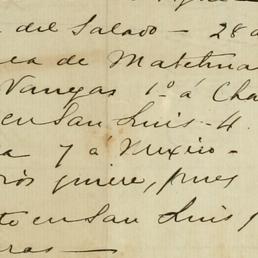 del Salado - 28 a
ea de Matehua
Vanegas 1º á Cha
en San Luis - 4
a 7 á Mexico -
rós quiere, pues
to en San Luis
ras -